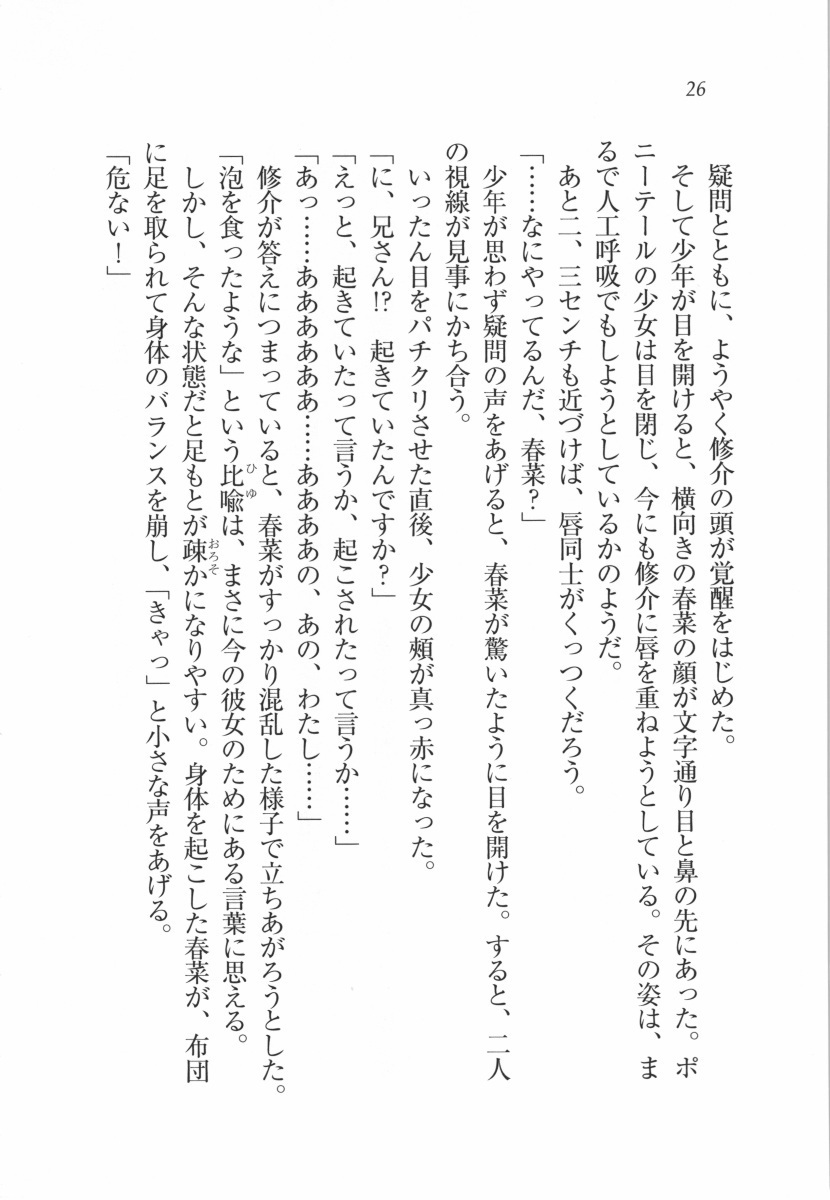 26
疑問とともに、ようやく修介の頭が覚醒をはじめた。
そして少年が目を開けると、横向きの春菜の顔が文字通り目と鼻の先にあった。ポ
ニーテールの少女は目を閉じ、今にも修介に唇を重ねようとしている。その姿は、ま
るで人工呼吸でもしようとしているかのようだ。
あと二、三センチも近づけば、唇同士がくっつくだろう。
「……なにやってるんだ、春菜?」
少年が思わず疑問の声をあげると、春菜が驚いたように目を開けた。すると、二人
の視線が見事にかち合う。
いったん目をパチクリさせた直後、少女の頰が真っ赤になった。
「に、兄さん!? 起きていたんですか?」
「えっと、起きていたって言うか、起こされたって言うか……」
「あっ……ああああああ……ああああの、あの、わたし……」
修介が答えにつまっていると、春菜がすっかり混乱した様子で立ちあがろうとした。
「泡を食ったような」という比喩ひゆは、まさに今の彼女のためにある言葉に思える。
しかし、そんな状態だと足もとが疎おろそかになりやすい。身体を起こした春菜が、布団
に足を取られて身体のバランスを崩し、「きゃっ」と小さな声をあげる。
「危ない!」